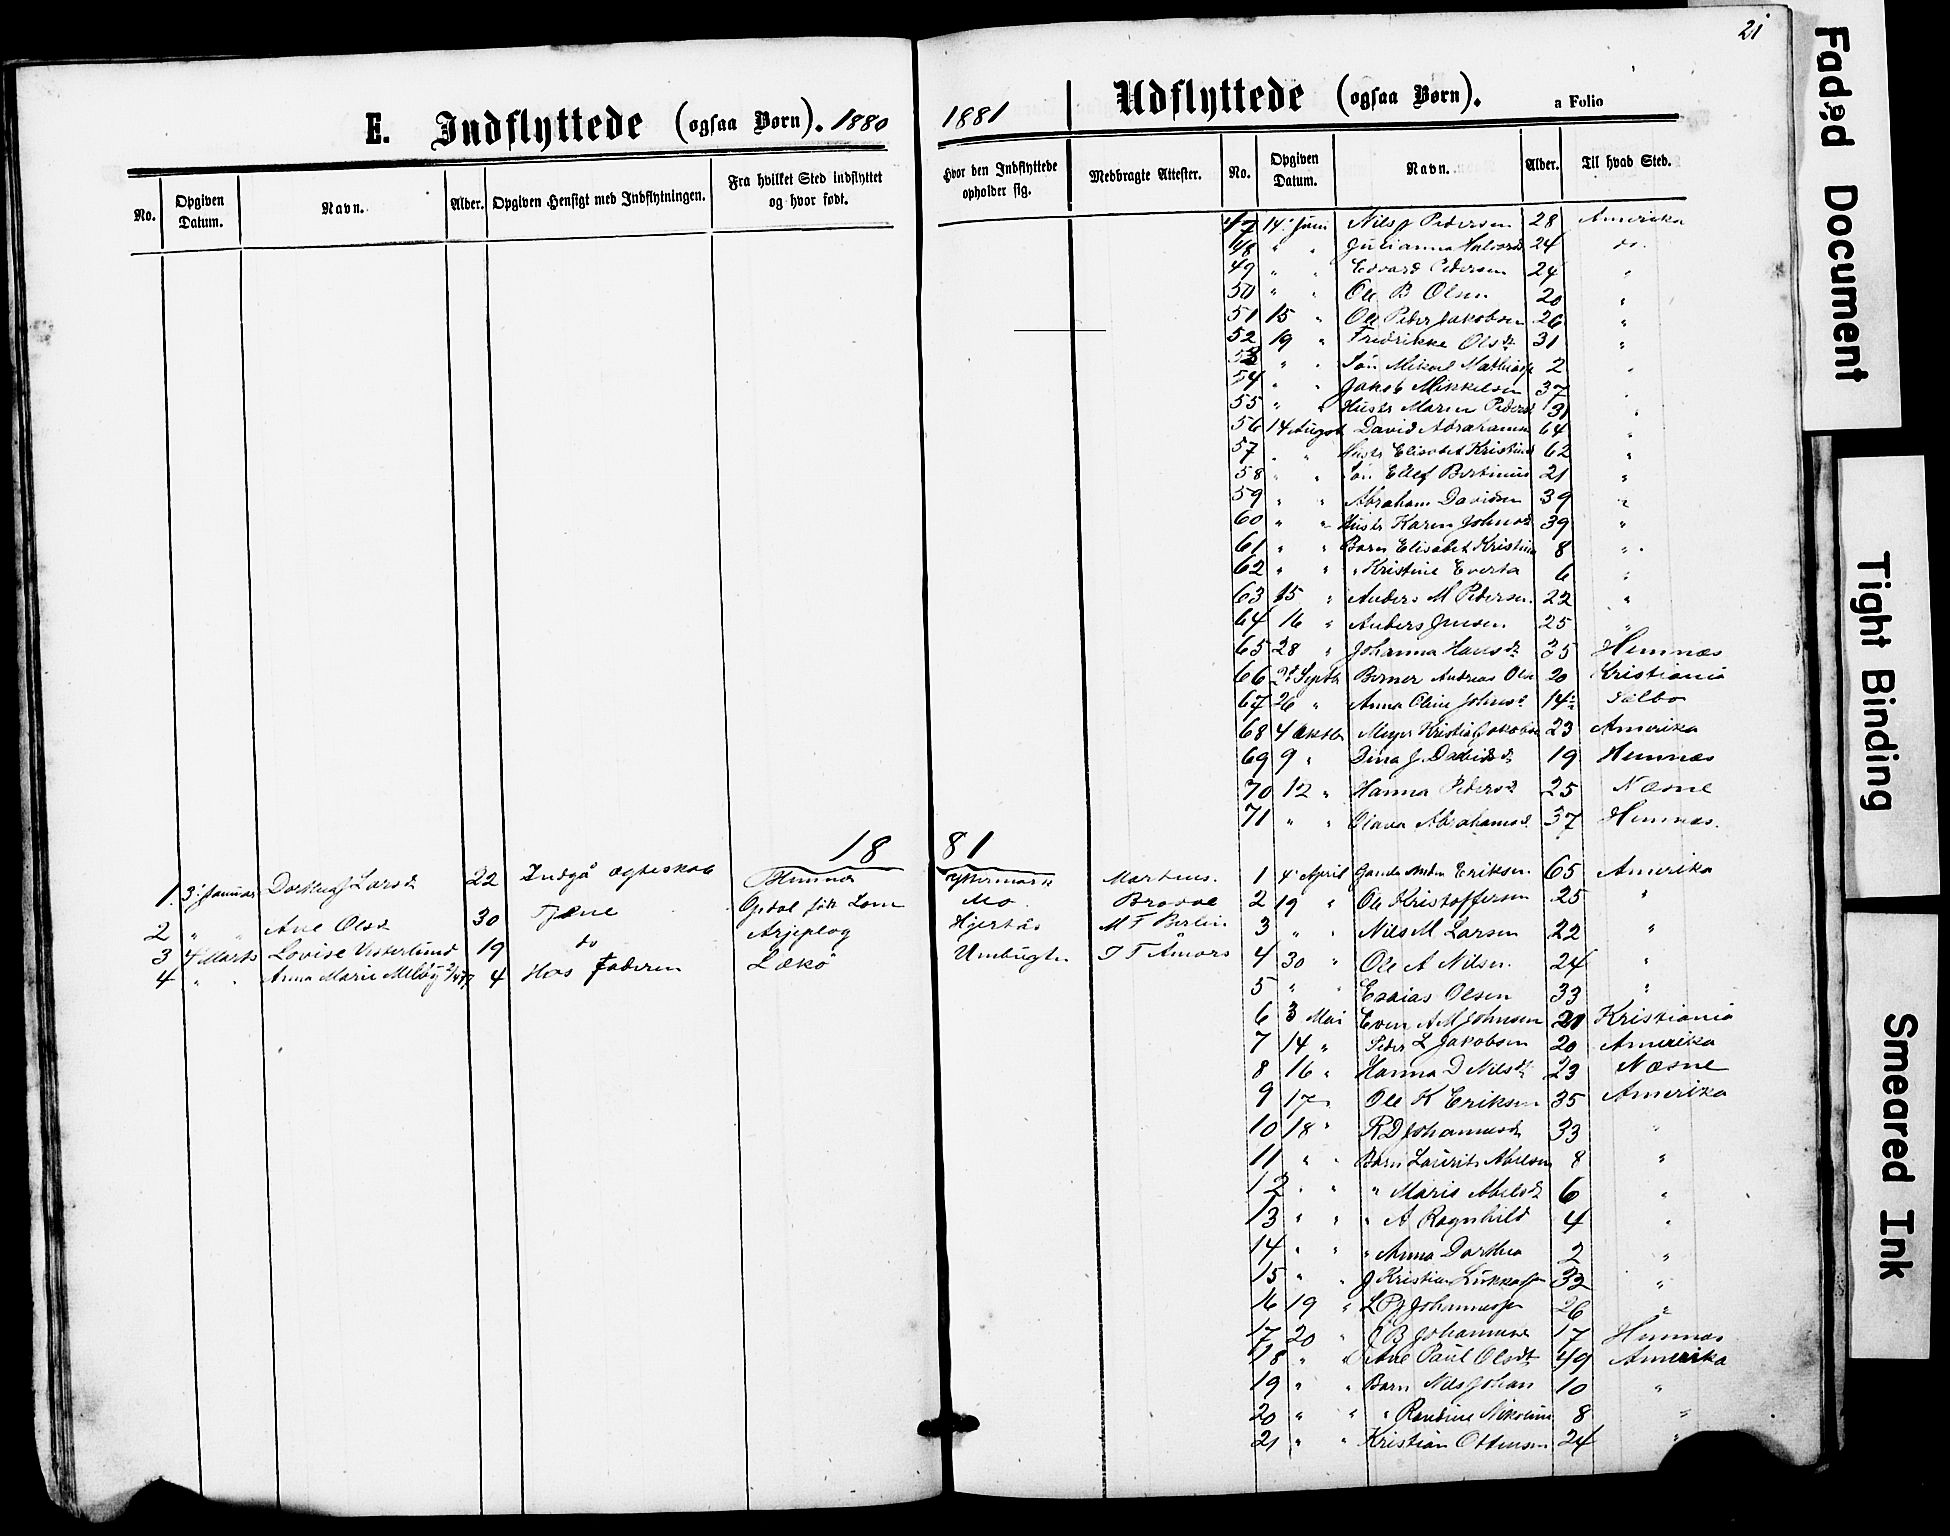 21
E. Indflyttede (ogsaa Børn). 1880
No. Opgiven Datum. Navn. Alder. Opgiven Hensigt med Indflytningen. Fra hvilket Sted indflyttet og hvor født.
18
1. 3' Januar Dorthea J Larsd 22 Indgå Ægteskab Hemnæs
2 " " Ane Olsd 30 Tjene Opdal født Lom
3 4 Marts Lovise Vesterlund 19 do Arjeplog
4 " " Anna Marie 4 Hos Faderen Lækö
1881 Udflyttede (ogsaa Børn). a Folio
Hvor den Indflyttede opholder sig. Medbragte Attester. No. Opgiven Datum. Navn. Alder. Til hvad Sted.
47 14' Juni Nils J Pedersen 28 Amerika
48 " " Julianna Halvorsd 24 do.
49 " " Edvard Pedersen 24 "
50 " " Ole B Olsen 20 "
51 15 " Ole Peder Jakobsen 26 "
52 19 " Fredrikke Olsd 31 "
53 " " Søn Mikael Mathias 2 "
54 " " Jakob Mikkelsen 37 "
55 " " Hustr Maren Pedersd 31 "
56 14 August David Abrahamsen 64 "
57 " " Hustr Elisabet Kristind 62 "
58 " " Søn Ellef Bertinius 21 "
59 " " Abraham Davidsen 39 "
60 " " Hustr Karen Johnsd 39 "
61 " " Barn Elisabet Kristine 8 "
62 " " " Kristine Everta 6 "
63 15 " Anders M Pedersen 22 "
64 16 " Anders Jensen 25 "
65 28 " Johanna Hansd 35 Hemnæs
66 2' Septbr Berner Andreas Olsen 20 Kristiania
67 26 " Anna Oline Johnsd 14 Salbo
68 4 Oktbr Meyer Kristian Jakobsen 23 Amerika
69 9 " Dina J. Davidsd 19 Hemnæs
70 12 " Hanna Pedersd 25 Næsne
71 " " Olava Abrahamsd 37 Hemnæs.
81
Mortens. 1 4' April Eriksen 65 Amerika
Mo. 2 19 " Ole Kristoffersen 25 "
Hjertås M F Berlin 3 " " Nils M Larsen 22 "
Umbugten 4 30 " Ole A Nilsen 24 "
5 " " Esaias Olsen 33 "
6 3 Mai Even A M Johnsen 21 Kristiania
7 14 " Peder L Jakobsen 20 Amerika
8 16 " Hanna D Nilsd 23 Næsne
9 17 " Ole K Eriksen 35 Amerika
10 18 " R D Johannesd 33 "
11 " " Barn Laurits Abelsen 8 "
12 " " " Marie Abelsd 6 "
13 " " " A Ragnhild 4 "
14 " " " Anna Dorthea 2 "
15 " " J Kristian Lukkassen 32 "
16 19 " L P J Johannessen 26 "
17 20 " B Johannesd 17 Hemnæs
18 " " Ane Paul Olsdt 49 Amerika
19 " " Barn Nils Johan 10 "
20 " " " Randine Nikoline 8 "
21 " " Kristian Ottersen 24 "
Faded Document
Tight Binding
Smeared Ink